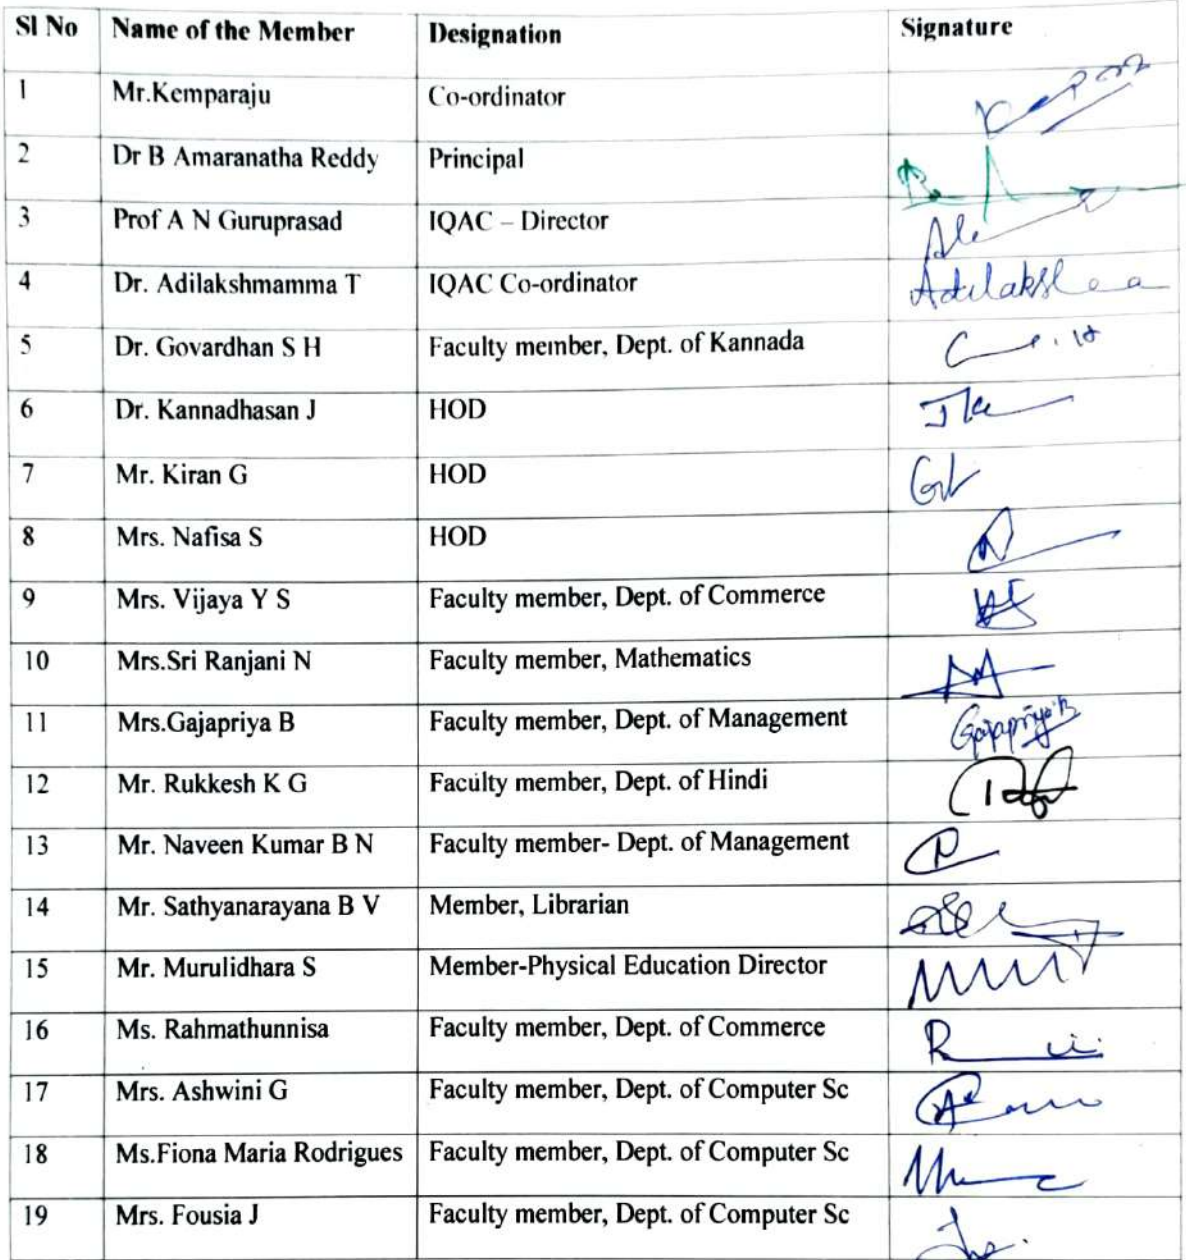 Sl No Name of the Member Designation Signature
1 Mr.Kemparaju Co-ordinator
2 Dr B Amaranatha Reddy Principal
3 Prof A N Guruprasad IQAC – Director
4 Dr. Adilakshmamma T IQAC Co-ordinator
5 Dr. Govardhan S H Faculty member, Dept. of Kannada
6 Dr. Kannadhasan J HOD
7 Mr. Kiran G HOD
8 Mrs. Nafisa S HOD
9 Mrs. Vijaya Y S Faculty member, Dept. of Commerce
10 Mrs.Sri Ranjani N Faculty member, Mathematics
11 Mrs.Gajapriya B Faculty member, Dept. of Management Gajapriya B
12 Mr. Rukkesh K G Faculty member, Dept. of Hindi
13 Mr. Naveen Kumar B N Faculty member- Dept. of Management
14 Mr. Sathyanarayana B V Member, Librarian
15 Mr. Murulidhara S Member-Physical Education Director
16 Ms. Rahmathunnisa Faculty member, Dept. of Commerce
17 Mrs. Ashwini G Faculty member, Dept. of Computer Sc
18 Ms.Fiona Maria Rodrigues Faculty member, Dept. of Computer Sc
19 Mrs. Fousia J Faculty member, Dept. of Computer Sc